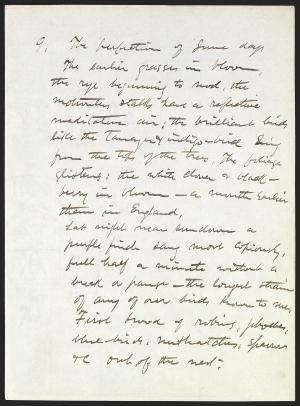 9, The perfection of June days
The earlier grasses in bloom,
the rye beginning to nod, the
motionless stalks have a reflective
meditative air; the brilliant birds
like the tanager & indigo-bird sing
from the tops of the trees. The foliage
glistens; the white clover & black-
berry in bloom — a month earlier
than in England,
Last night near sundown a
purple finch sang most copiously,
full half a minute without a
break or pause — the longest strain
of any of our birds known to me,
First brood of robins, phoebes,
blue-birds, nuthatches, sparrows
&c out of the nest.